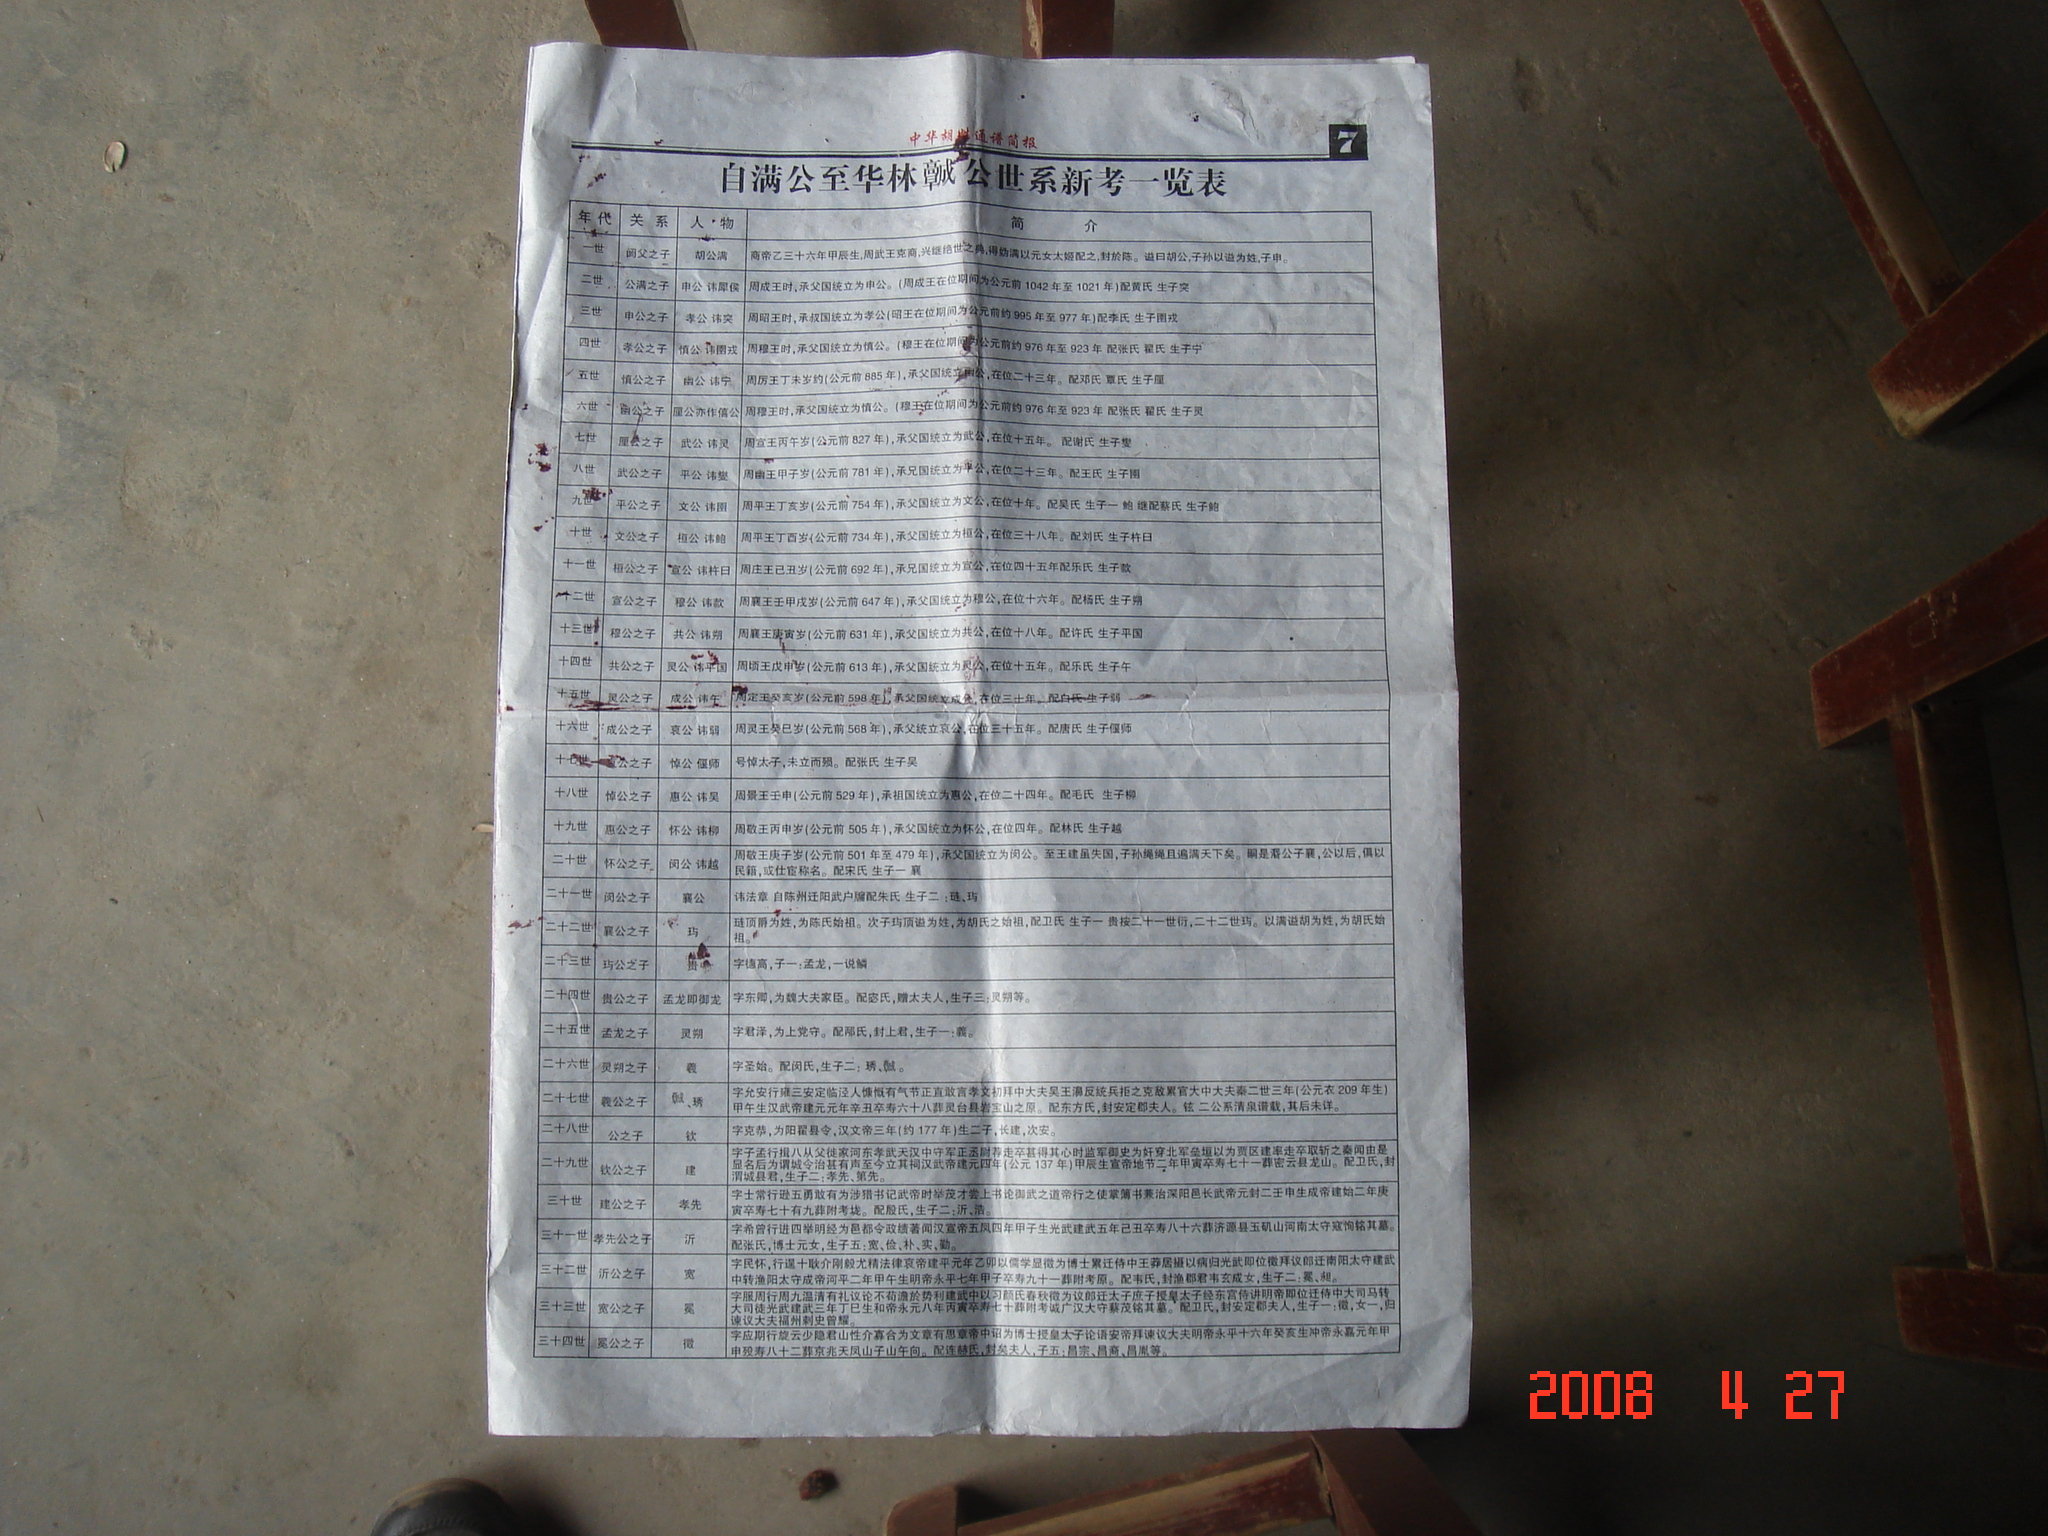 中华胡姓通谱简报
7
自满公至华林 公世系新考一览表
年代 关系 人物 简介
一世 阏父之子 胡公满 商帝乙三十六年甲辰生,周武王克商,兴继绝世之典,得幼满以元女太姬配之,封於陈。谥曰胡公,子孙以谥为姓,子申。
二世 公满之子 申公 讳犀侯 周成王时,承父国统立为申公。(周成王在位期间为公元前1042年至1021年)配黄氏 生子突
三世 申公之子 孝公 讳突 周昭王时,承叔国统立为孝公(昭王在位期间为公元前约995年至977年)配李氏 生子圉戎
四世 孝公之子 慎公 讳圉戎 周穆王时,承父国统立为慎公。(穆王在位期间为公元前约976年至923年 配张氏 翟氏 生子宁
五世 慎公之子 幽公 讳宁 周厉王丁未岁约(公元前885年),承父国统立幽公,在位二十三年。配邓氏 覃氏 生子厘
六世 幽公之子 厘公亦作僖公 周穆王时,承父国统立为慎公。(穆王在位期间为公元前约976年至923年 配张氏 翟氏 生子灵
七世 厘公之子 武公 讳灵 周宣王丙午岁(公元前827年),承父国统立为武公,在位十五年。 配谢氏 生子燮
八世 武公之子 平公 讳燮 周幽王甲子岁(公元前781年),承兄国统立为平公,在位二十三年。配王氏 生子圉
九世 平公之子 文公 讳圉 周平王丁亥岁(公元前754年),承父国统立为文公,在位十年。配吴氏 生子一 鲍 继配蔡氏 生子鲍
十世 文公之子 桓公 讳鲍 周平王丁酉岁(公元前734年),承父国统立为桓公,在位三十八年。配刘氏 生子杵臼
十一世 桓公之子 宣公 讳杵臼 周庄王己丑岁(公元前692年),承兄国统立为宣公,在位四十五年配乐氏 生子款
十二世 宣公之子 穆公 讳款 周襄王壬甲戌岁(公元前647年),承父国统立为穆公,在位十六年。配杨氏 生子朔
十三世 穆公之子 共公 讳朔 周襄王庚寅岁(公元前631年),承父国统立为共公,在位十八年。配许氏 生子平国
十四世 共公之子 灵公 讳平国 周顷王戊申岁(公元前613年),承父国统立为灵公,在位十五年。配乐氏 生子午
十五世 灵公之子 成公 讳午 周定王癸亥岁(公元前598年),承父国统立成公,在位三十年。配白氏 生子弱
十六世 成公之子 哀公 讳弱 周灵王癸巳岁(公元前568年),承父统立哀公,在位三十五年。配唐氏 生子偃师
十七世 公之子 悼公 偃师 号悼太子,未立而殒。配张氏 生子吴
十八世 悼公之子 惠公 讳吴 周景王壬申(公元前529年),承祖国统立为惠公,在位二十四年。配毛氏 生子柳
十九世 惠公之子 怀公 讳柳 周敬王丙申岁(公元前505年),承父国统立为怀公,在位四年。配林氏 生子越
二十世 怀公之子 闵公 讳越 周敬王庚子岁(公元前501年至479年),承父国统立为闵公。至王建虽失国,子孙绳绳且遍满天下矣。嗣是潘公子襄,公以后,俱以
民籍,或仕宦称名。配宋氏 生子一 襄
二十一世 闵公之子 襄公 讳法章 自陈州迁阳武户牖配朱氏 生子二 :琏、玙
二十二世 襄公之子 玙 琏顶爵为姓,为陈氏始祖。次子玙顶谥为姓,为胡氏之始祖,配卫氏 生子一 贵按二十一世衍,二十二世玙。以满谥胡为姓,为胡氏始
祖。
二十三世 玙公之子 贵 字德高,子一:孟龙,一说鳞
二十四世 贵公之子 孟龙即御龙 字东卿,为魏大夫家臣。配宓氏,赠太夫人,生子三:灵朔等。
二十五世 孟龙之子 灵朔 字君泽,为上党守。配邴氏,封上君,生子一:羲。
二十六世 灵朔之子 羲 字圣始。配闵氏,生子二: 琇、
二十七世 羲公之子 、琇 字允安行雍三安定临泾人慷慨有气节正直敢言孝文初拜中大夫吴王濞反统兵拒之克敌累官大中大夫秦二世三年(公元衣209年生)
甲午生汉武帝建元元年辛丑卒寿六十八葬灵台县岩宝山之原。配东方氏,封安定郡夫人。铉 二公系清泉谱载,其后未详。
二十八世 公之子 钦 字克恭,为阳翟县令,汉文帝三年(约177年)生二子,长建,次安。
二十九世 钦公之子 建 字子孟行揖八从父徙家河东孝武天汉中守军正丞尉荐走卒甚得其心时监军御史为奸穿北军垒垣以为贾区建率走卒取斩之秦闻由是
显名后为谓城令治甚有声至今立其祠汉武帝建元四年(公元137年)甲辰生宣帝地节二年甲寅卒寿七十一葬密云县龙山。配卫氏,封
渭城县君,生子二:孝先、第先。
三十世 建公之子 孝先 字士常行逊五勇敢有为涉猎书记武帝时举茂才尝上书论御武之道帝行之使掌薄书兼治深阳邑长武帝元封二壬申生成帝建始二年庚
寅卒寿七十有九葬附考垅。 配殷氏,生子二:沂、浩。
三十一世 孝先公之子 沂 字希曾行进四举明经为邑都令政绩著闻汉宣帝五凤四年甲子生光武建武五年己丑卒寿八十六葬济源县玉矶山河南太守寇恂铭其墓。
配张氏,博士元女,生子五:宽、俭、朴、实、勤。
三十二世 沂公之子 宽 字民怀,行暹十耿介刚毅尤精法律哀帝建平元年乙卯以儒学显徵为博士累迁侍中王莽居摄以病归光武即位徵拜议郎迁南阳太守建武
中转渔阳太守成帝河平二年甲午生明帝永平七年甲子卒寿九十一葬附考原。 配韦氏,封渔郡君韦玄成女,生子二:冕、昶。
三十三世 宽公之子 冕 字服周行周九温清有礼议论不苟澹於势利建武中以习颜氏春秋徵为议郎迁太子庶子授皇太子经东宫侍讲明帝即位迁侍中大司马转
大司徒光武建武三年丁巳生和帝永元八年丙寅卒寿七十葬附考诚广汉大守蔡茂铭其墓。 配卫氏,封安定郡夫人,生子一:徵,女一,归
谏议大夫福州刺史曾耀。
三十四世 冕公之子 徵 字应期行旋云少隐君山性介寡合为文章有思章帝中诏为博士授皇太子论语安帝拜谏议大夫明帝永平十六年癸亥生冲帝永嘉元年甲
申殁寿八十二葬京兆天凤山子山午向。 配连赫氏,封矣夫人,子五:昌宗、昌裔、昌胤等。
2008 4 27